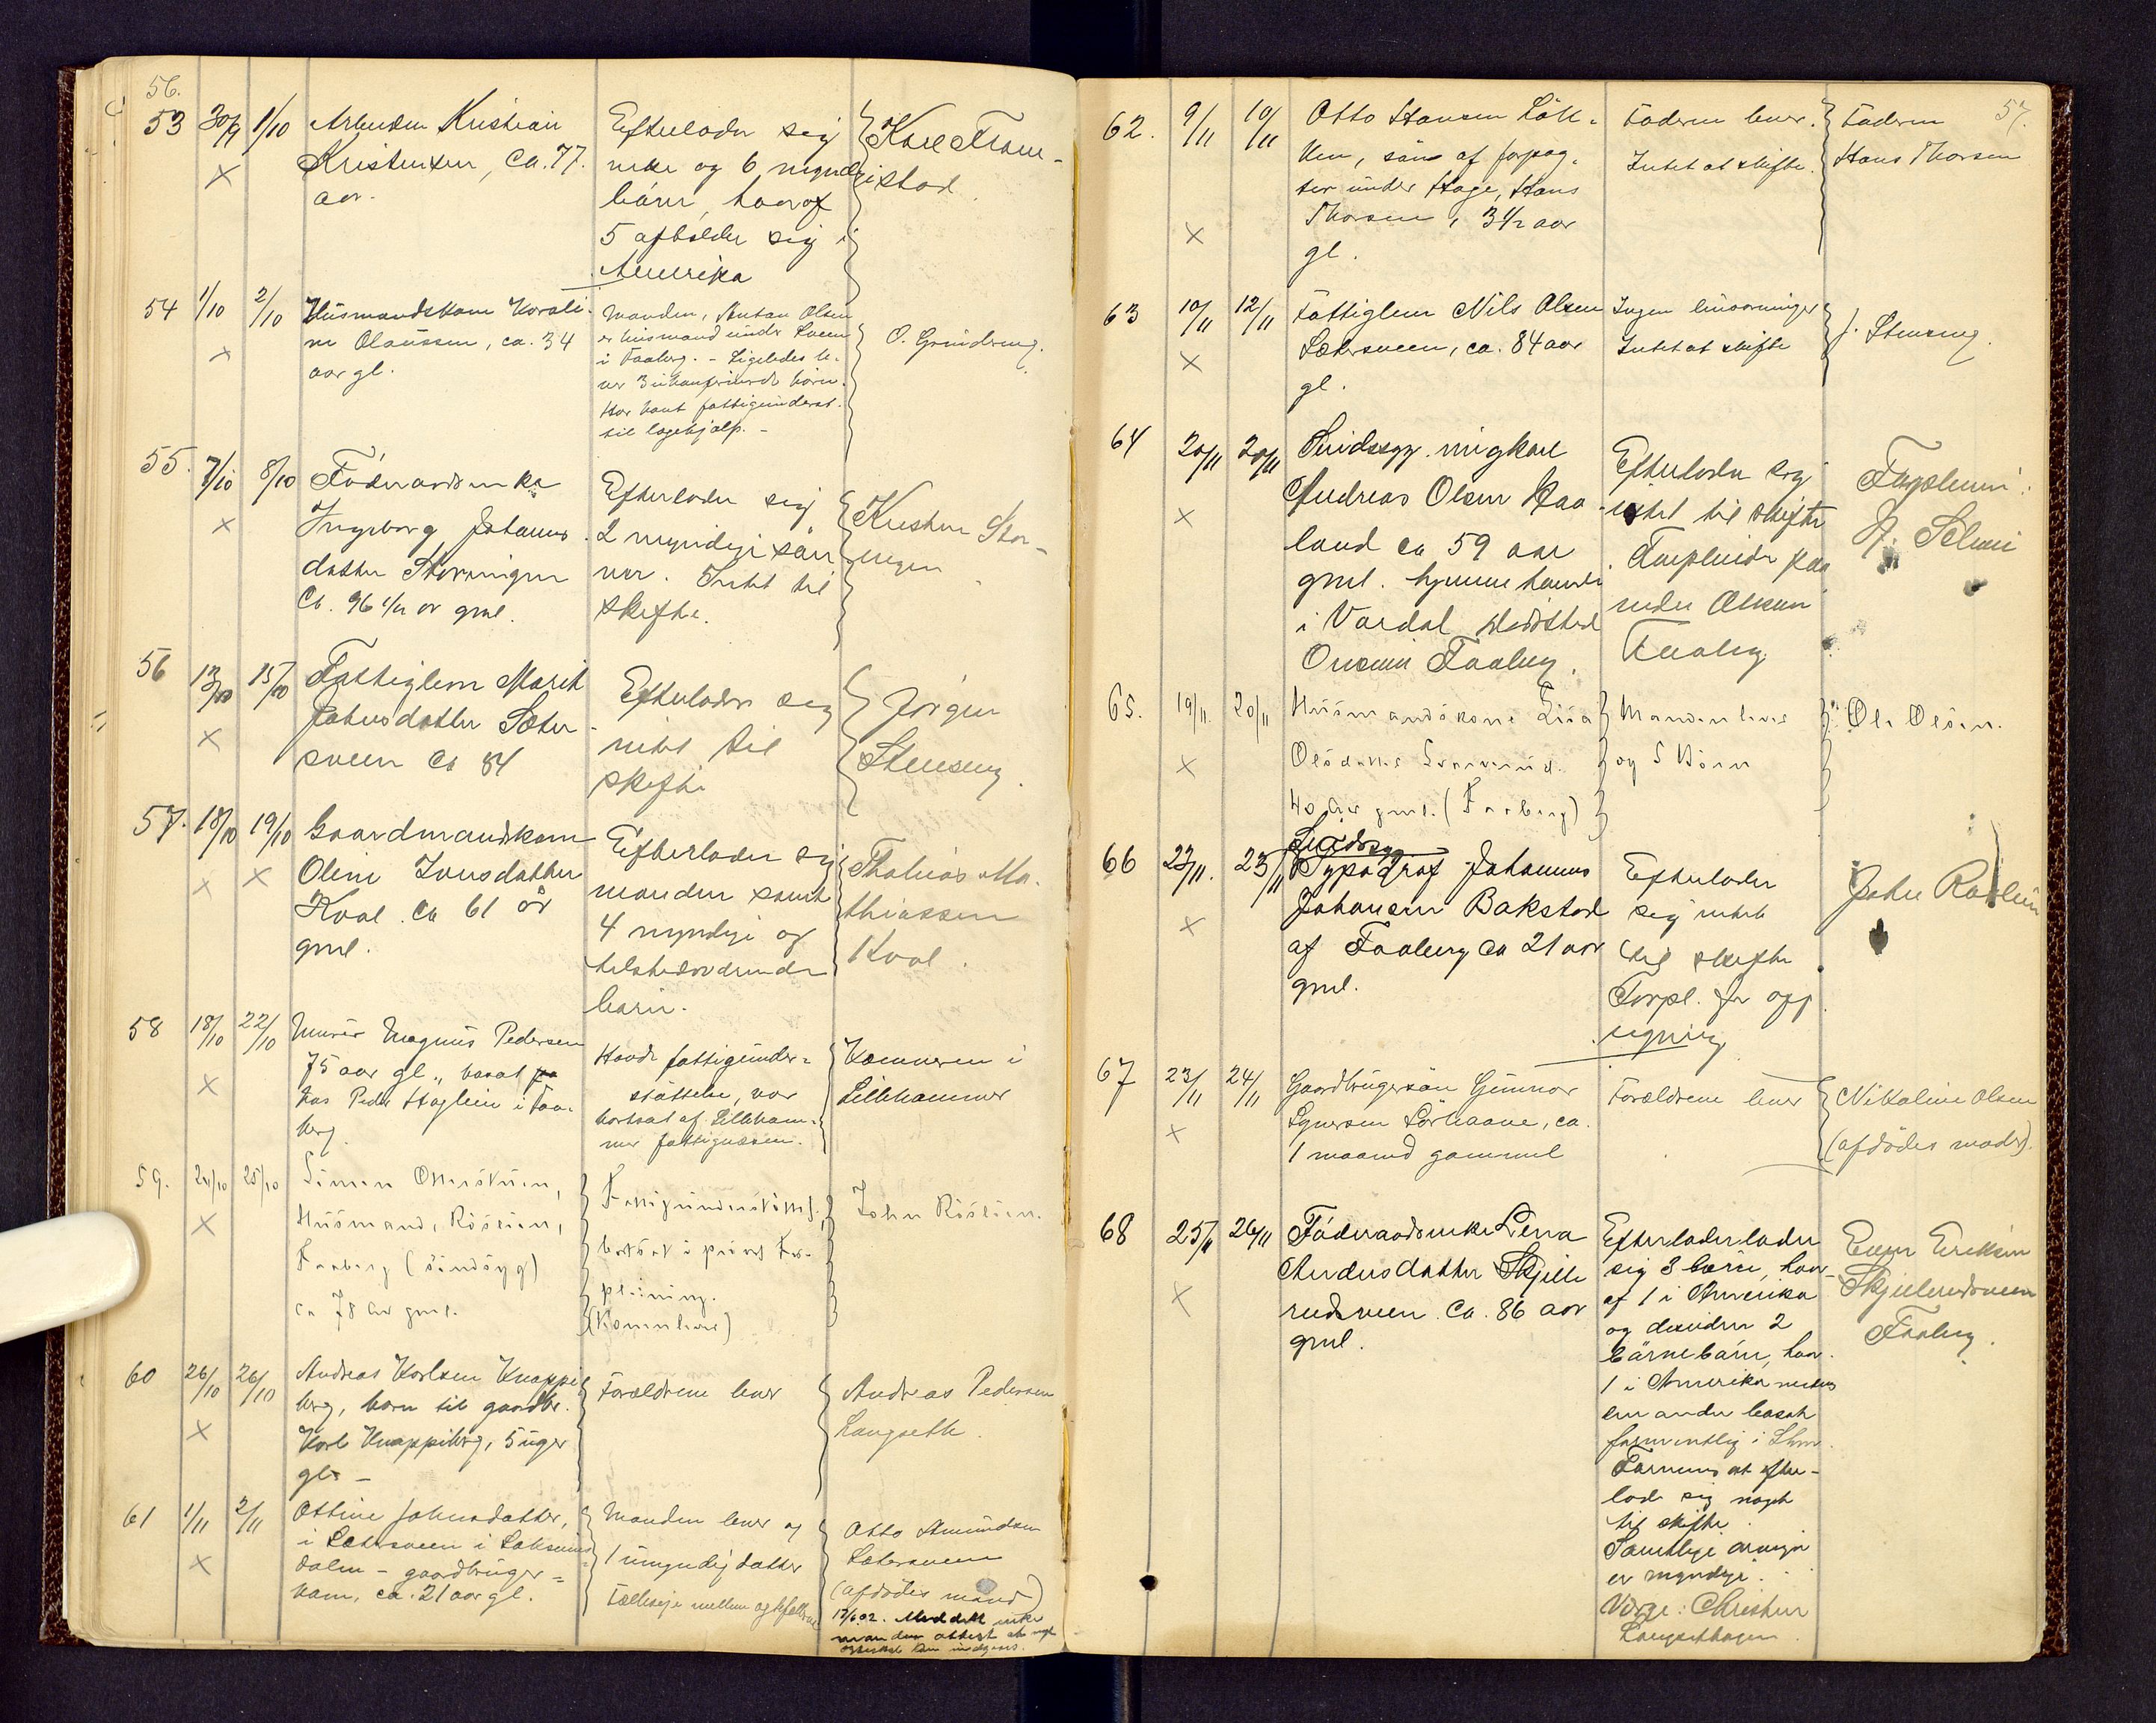 56.
53 30/9 1/10 Arbeider Kristian
Kristensen, Ca. 77.
aar.
Efterlader sig
enke og 6 myndige
børn, hvoraf
5 opholder sig i
Amerika
Karl Fram-
stad
54 1/10 2/10 Husmandskone Korali-
ne Olaussen, ca. 34
aar gl.
Manden, Anton Olsen
er husmand under
i Faaberg. - Ligeledes le-
ver 3 ukonfirmerte børn.
Har havt fattigunderst.
til lægehjælp. -
O. Grundeeng.
55. 7/10 8/10 Føderaadsenke
Ingeborg Johannes-
datter Storeengen
Ca. 96 1/2 år gml.
Efterlader sig
2 myndige søn-
ner. Intet til
skifte.
Kristen Stor-
engen
56 13/10 15/10 Fattiglem Marit
Johnsdatter Sæter-
sveen Ca 84
Efterlader sig
intet til
skifte
Jørgen
Stenseng.
57. 18/10 19/10 Gaardmandskone
Oline Iversdatter
Hval. Ca 61 år
gml.
Efterlader sig
manden samt
4 myndige og
tilstedeværende
børn.
Mathiassen
Hval.
58 18/10 22/10 Murer Magnus Pedersen
75 aar gl., bosat
hos Peder Haglein i Faa-
berg.
Havde fattigunder-
støttelse, var
bortsat af Lilleham-
mer fattigvæsen.
Kæmneren i
Lillehammer
59. 24/10 25/10 Simen
Husmand, Røslien,
Faaberg (sindsyg)
ca 78 Aar gml.
Fattigunderstøttet,
bortsat i privat For-
pleining.
(Konen lever)
John Røslien.
60 26/10 26/10 Andreas Karlsen Knappe
berg, barn til gaardbr.
Karl Knappeberg, 5 uger
gl. -
Forældrene lever
Andreas Pedersen
Langseth.
61 1/11 2/11 Ottine Johnsdatter,
i Sætersveen i Saksum-
dalen - gaardbruger-
kone, ca. 21 aar gl.
Manden lever og
1 umyndig datter
Fælleseje mellem ægtefællerne
Otto Amundsen
Sætersveen
(afdødes mand)
12/6 02. Meddelt enke-
manden attest at
57.
62. 9/11 10/11 Otto Hansen Løk-
ken, søn af forpag-
ter under Hage, Hans
Thorsen, 3 1/2 aar
gl.
Faderen lever.
Intet at skifte.
Faderen
Hans Thorsen
63 10/11 12/11 Fattiglem Nils Olsen
Sætersveen, ca. 84 aar
gl.
Ingen livsarvinger
Intet at skifte
J. Stenseng.
64 20/11 20/11 Sindssyg ungkarl
Andreas Olsen Haa-
land ca 59 aar
gml. hjemmehørende
i Vardal dødssted
Onsum Faaberg.
Efterlader sig
intet til skifte
Forpleiedes paa
Faaberg
65. 19/11. 20/11 Husmandskone Lisa
Olsdatter
40 Aar gml. (Faaberg)
Manden lever
og 5 Børn
Ole Olsen.
66 22/11. 23/11 Sindssyg
Typograf Johannes
Johansen Bakstad
af Faaberg ca 21 aar
gml.
Efterlader
sig intet
til skifte
Forpl. for opp
John Røslien
67 23/11 24/11 Gaardbrugersøn Gunnar
Sørhaave, ca.
1 maaned gammel
Forældrene lever
Nikoline Olsen
(afdødes moder).
68 25/11 26/11 Føderaadsenke Lena
Andersdatter Skjelle
rudsveen. Ca. 86 aar
gml.
Efterlader lader
sig 3 børn, hvor-
af 1 i Amerika
og desuden 2
børnebørn, hvor-
1 i Amerika mens
den anden bosat
formentlig i Lhmr.
Formenes at efter-
lade sig noget
til skifte.
Samtlige arvinger
er myndige.
Værge: Christen
Langsethagen
Even Eriksen
Skjellerudsveen
Faaberg.